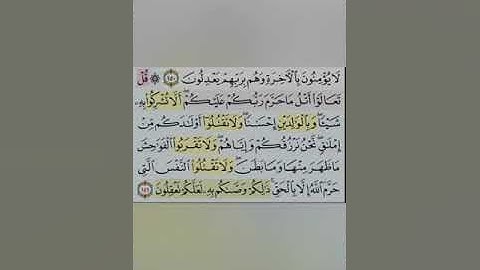 لَا يُؤْمِنُونَ بِٱلْـَٔاخِرَةِ وَهُم بِرَبِّهِمْ يَعْدِلُونَ ١٥٠ ۞ قُلْ
تَعَالَوْا۟ أَتْلُ مَا حَرَّمَ رَبُّكُمْ عَلَيْكُمْ ۖ أَلَّا تُشْرِكُوا۟ بِهِۦ
شَيْـًٔا ۖ وَبِٱلْوَٰلِدَيْنِ إِحْسَـٰنًا ۖ وَلَا تَقْتُلُوٓا۟ أَوْلَـٰدَكُم مِّنْ
إِمْلَـٰقٍ ۖ نَّحْنُ نَرْزُقُكُمْ وَإِيَّاهُمْ ۖ وَلَا تَقْرَبُوا۟ ٱلْفَوَٰحِشَ
مَا ظَهَرَ مِنْهَا وَمَا بَطَنَ ۖ وَلَا تَقْتُلُوا۟ ٱلنَّفْسَ ٱلَّتِى
حَرَّمَ ٱللَّهُ إِلَّا بِٱلْحَقِّ ۚ ذَٰلِكُمْ وَصَّىٰكُم بِهِۦ لَعَلَّكُمْ تَعْقِلُونَ ١٥١